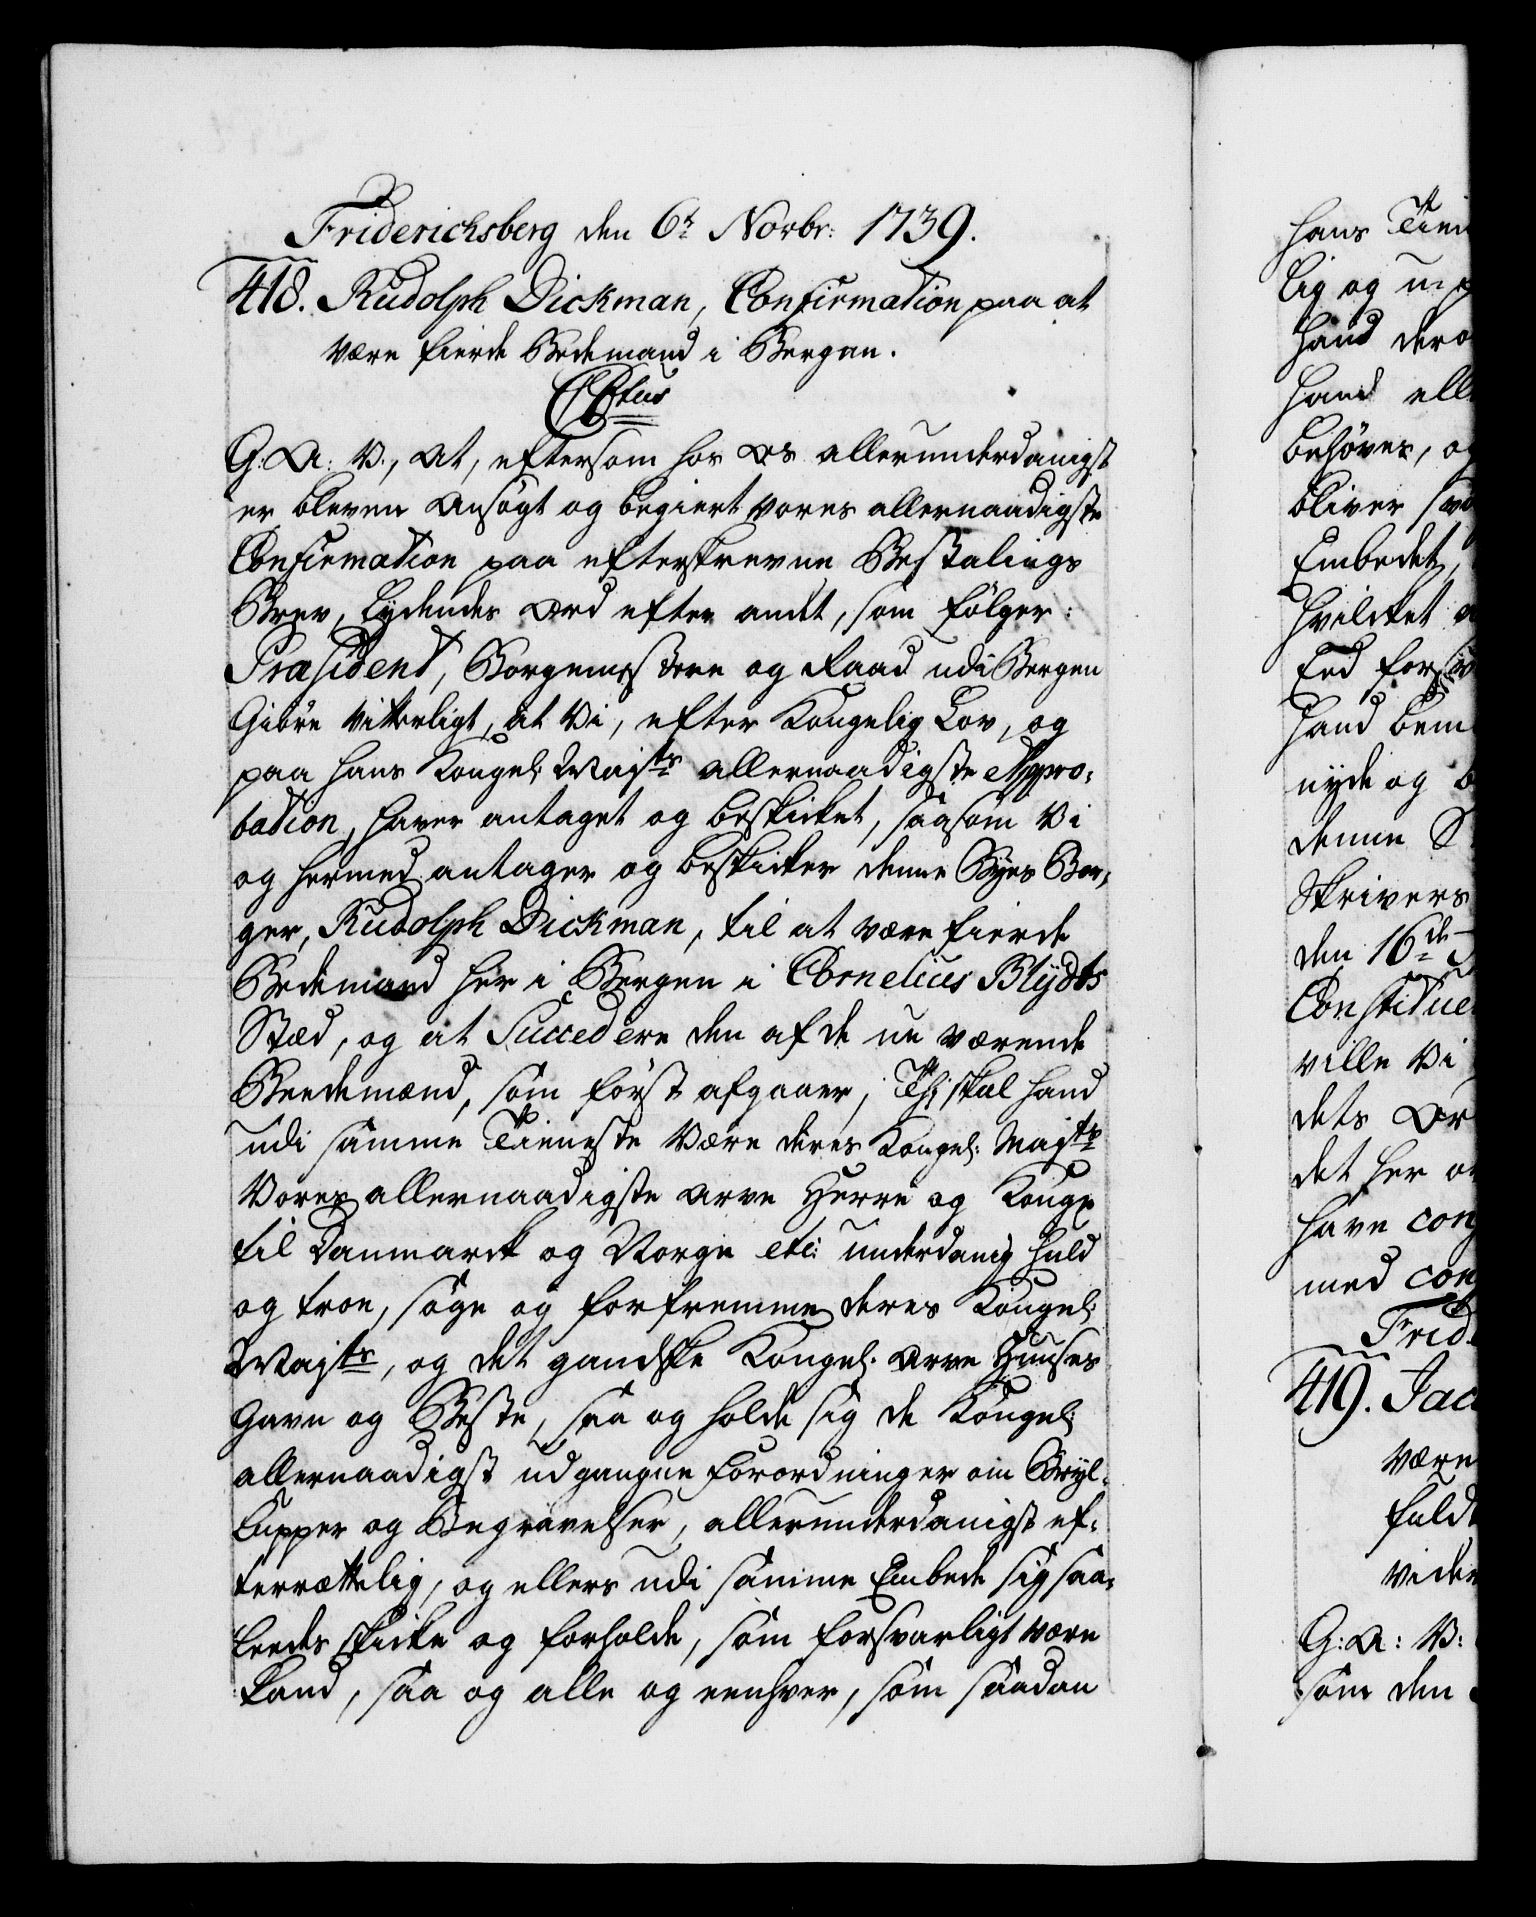 Friderichsberg den 6te Novbr: 1739.
418. Rudolph Dickman, Confirmation paa at
være fierde Bedemand i Bergen.
C6tus
G: A: V., at, eftersom hos os allerunderdanigst
er bleven ansøgt og begiert vores allernaadigste
Confirmation paa efterskrevne Bestalings
Brev, lydendes ord efter andet, som følger:
Præsident, Borgemestere og Raad udi Bergen
Giøre vitterligt, at Vi, efter Kongelig Lov, og
paa hans Kongel: Majts allernaadigste Appro-
bation, haver antaget og beskicket, saasom Vi
og hermed antager og beskicker denne Byes Bor-
ger, Rudolph Dickman, til at være fierde
Bedemand her i Bergen i Cornelius Blydts
Stæd, og at Succedere den af de nu værende
Beedemænd, som først afgaaer, Thi skal hand
udi samme Tieneste være deres Kongel: Majts
Vores allernaadigste Arve Herre og Konge
til Danmarck og Norge etc: underdanig huld
og troe, søge og forfremme deres Kongel:
Majts, og det gandske Kongel: Arve Huuses
Gavn og Beste, saa og holde sig de Kongel:
allernaadigst udgangne Forordninger om Bryl-
lupper og Begravelser, allerunderdanigst ef-
terrættelig, og ellers udi samme Embede sig saa-
leedes skicke og forholde, som forsvarligt være
kand, saa og alle og eenhver, som saadan
hans Tien
lig og u-p
hand der
hand ell
behøves, og
bliver
Embedet,
hvilcket
Eed for
hand bem
nyde og
denne S
Skrivers
den 16de
Constitue
ville Vi
dets Or
det her
have con
med con
Frid
419. Jac
være
fuld
vider
G: A: V:
som den